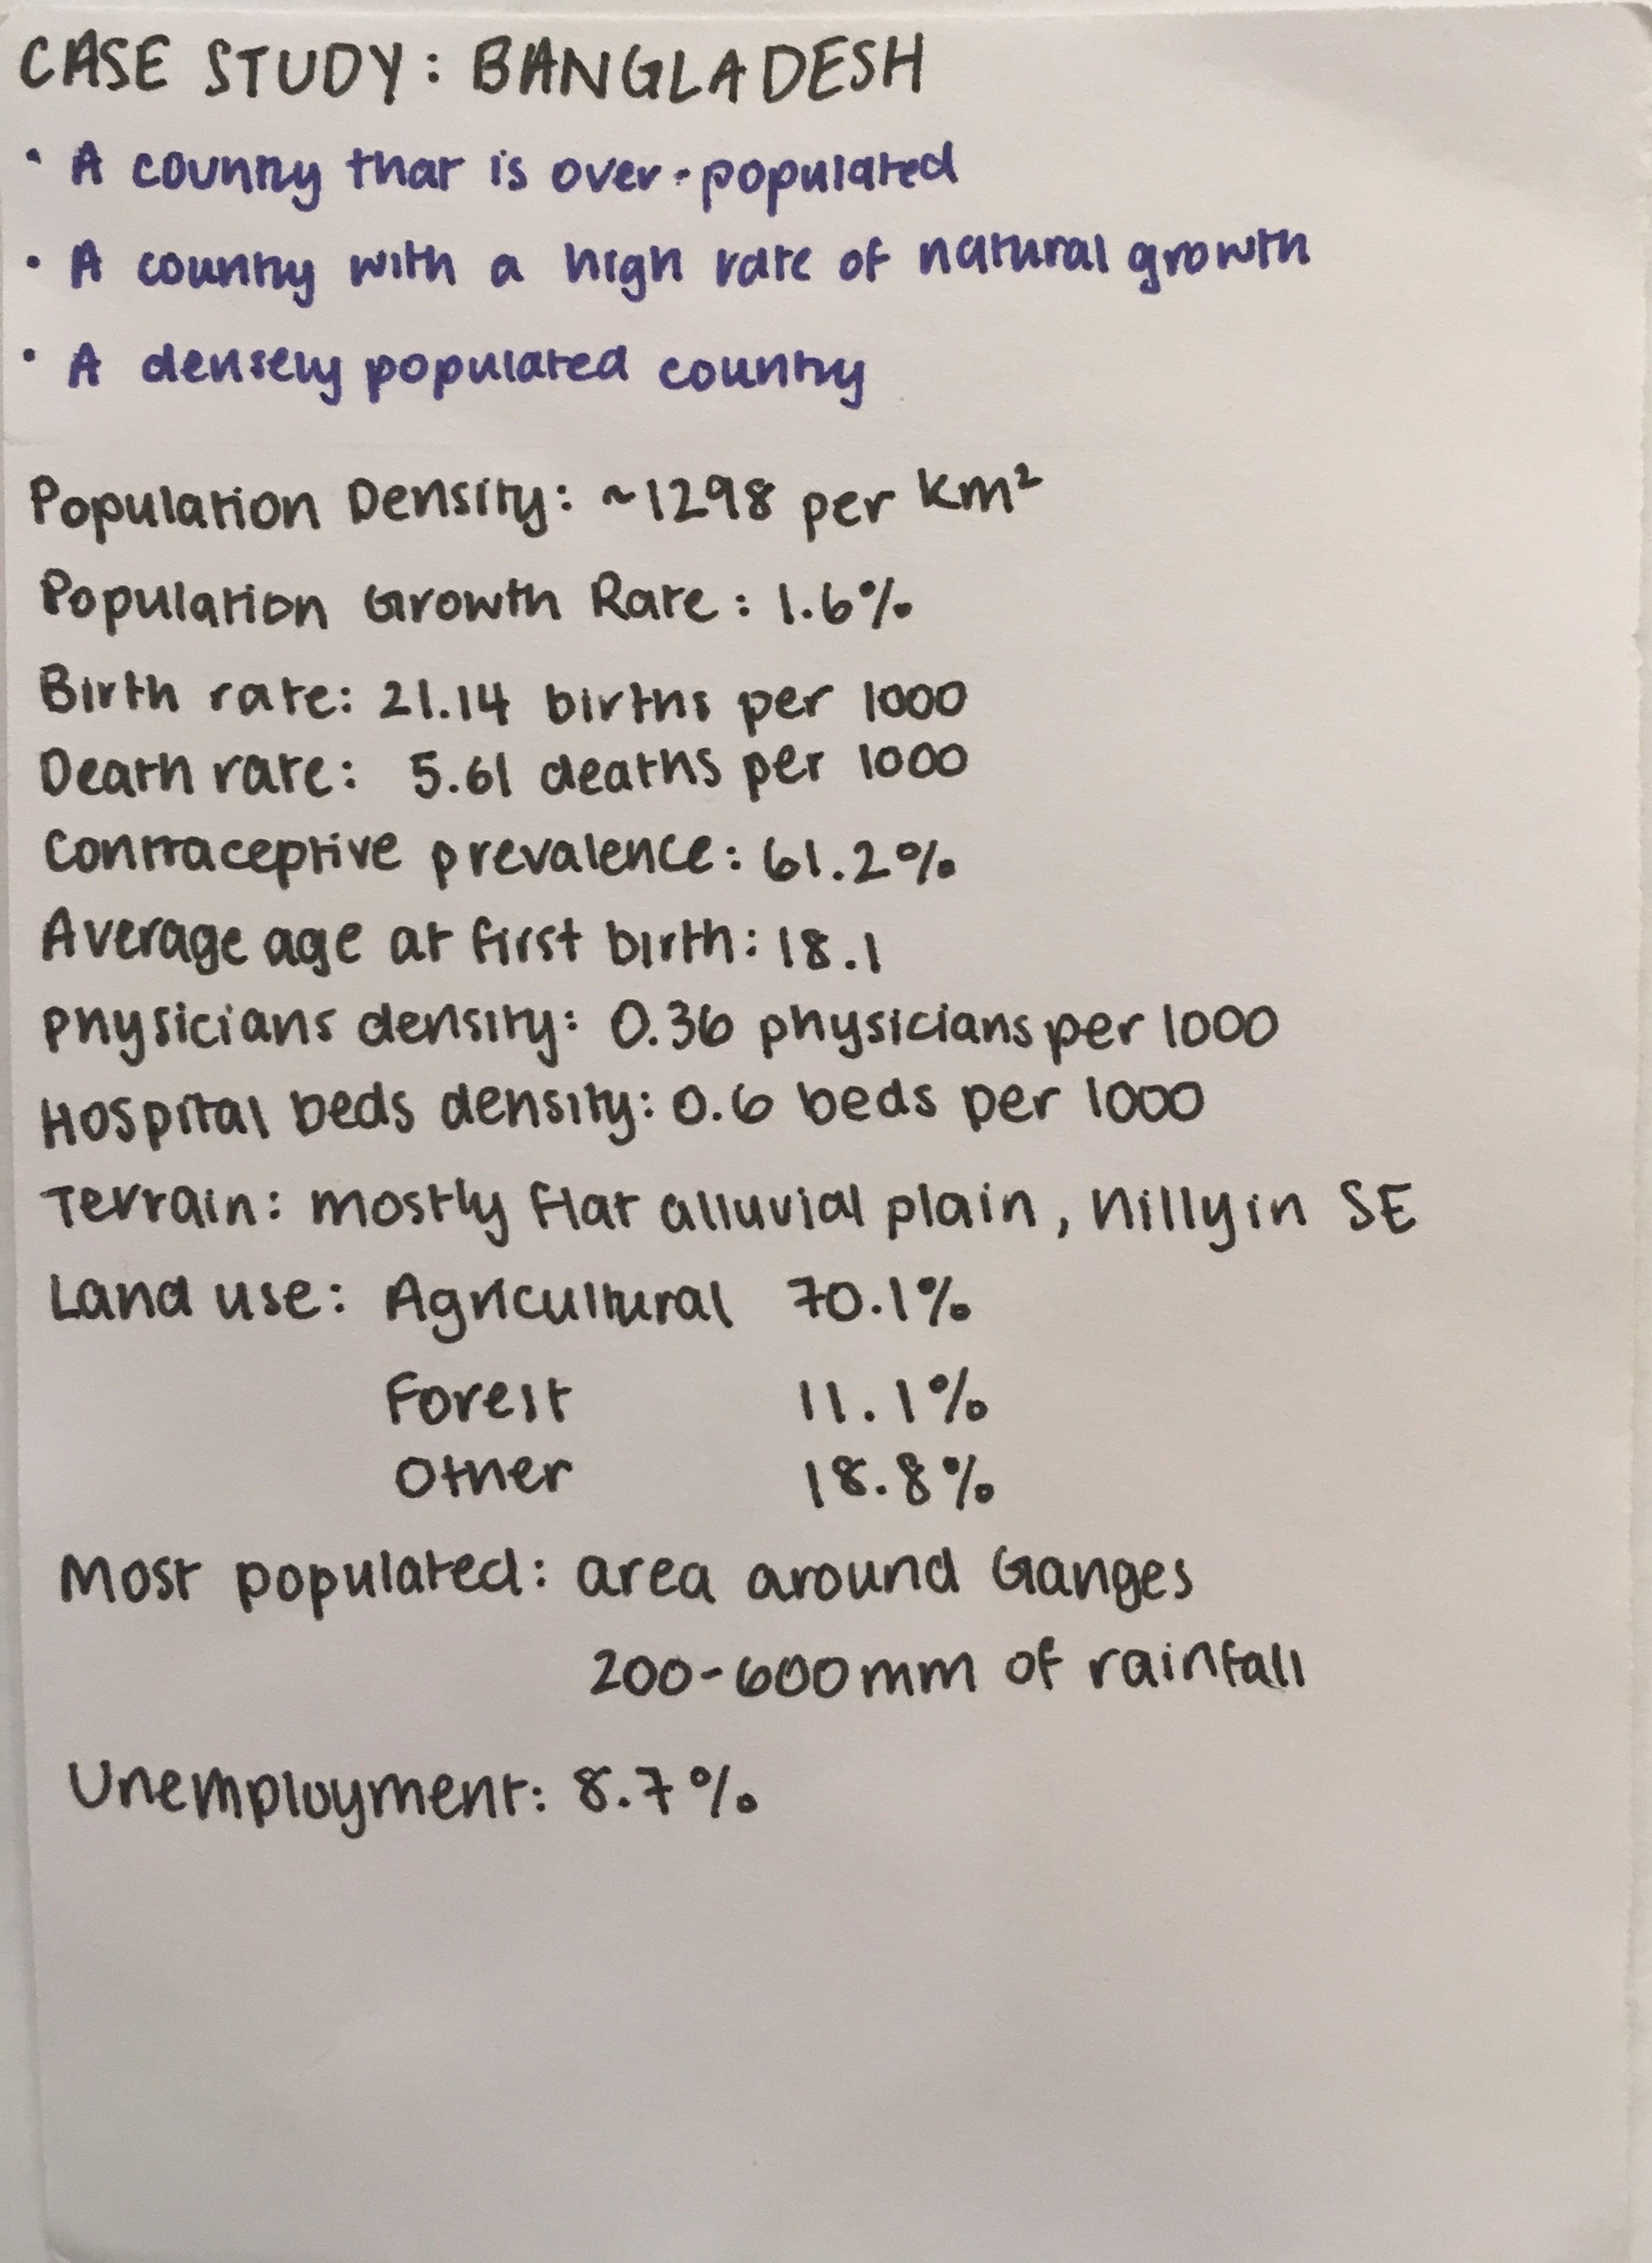 CASE STUDY: BANGLADESH
• A country that is over-populated
• A country with a high rate of natural growth
• A densely populated country
Population Density: ~1298 per km²
Population Growth Rate: 1.6%
Birth rate: 21.14 births per 1000
Death rate: 5.61 deaths per 1000
Contraceptive prevalence: 61.2%
Average age at first birth: 18.1
Physicians density: 0.36 physicians per 1000
Hospital beds density: 0.6 beds per 1000
Terrain: mostly flat alluvial plain, hilly in SE
Land use: Agricultural 70.1%
Forest 11.1%
Other 18.8%
Most populated: area around Ganges
200-600mm of rainfall
Unemployment: 8.7%